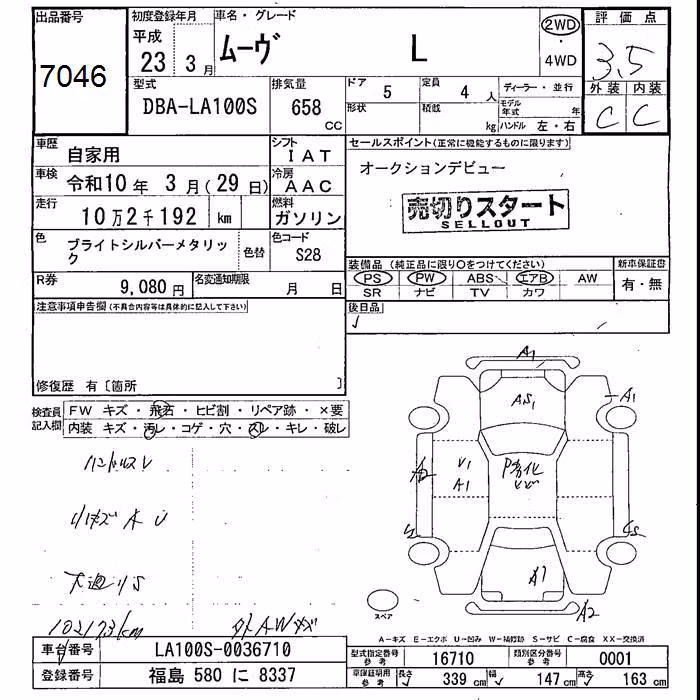 出品番号
7046
初度登録年月
平成
23 3月
車名・グレード
ムーヴ L
2WD
・
4WD
評価点
3.5
外装 内装
C C
型式
DBA-LA100S
排気量
658
CC
ドア 5
定員 4人
形状
積載 kg
ディーラー・並行
モデル年式 年
ハンドル 左・右
車歴
自家用
シフト
IAT
車検 令和10年 3月(29日)
冷房
AAC
走行 10万2千192 km
燃料
ガソリン
色
ブライトシルバーメタリック
色替
色コード
S28
R券 9,080円
名変通知期限 月 日
セールスポイント(正常に機能するものに限ります)
オークションデビュー
売切りスタート
SELLOUT
装備品(純正品に限り○をつけてください)
PS PW ABS エアB AW
SR ナビ TV カワ
新車保証書
有・無
後日品
注意事項申告欄(不具合内容等は具体的に記入して下さい)
修復歴 有〔箇所 〕
検査員記入欄
FW キズ・飛石・ヒビ割・リペア跡・×要
内装 キズ・汚レ・コゲ・穴・スレ・キレ・破レ
ハンドルスレ
A1
AS1
A1
A2
U1
A1
P劣化
A1
A2
スペア
A-キズ E-エクボ U-凹み W-補修跡 S-サビ C-腐食 XX-交換済
車台番号 LA100S-0036710
登録番号 福島 580 に 8337
型式指定番号
参考
16710
類別区分番号
参考
0001
車庫証明用
参考
長さ 339cm 幅 147cm 高さ 163cm